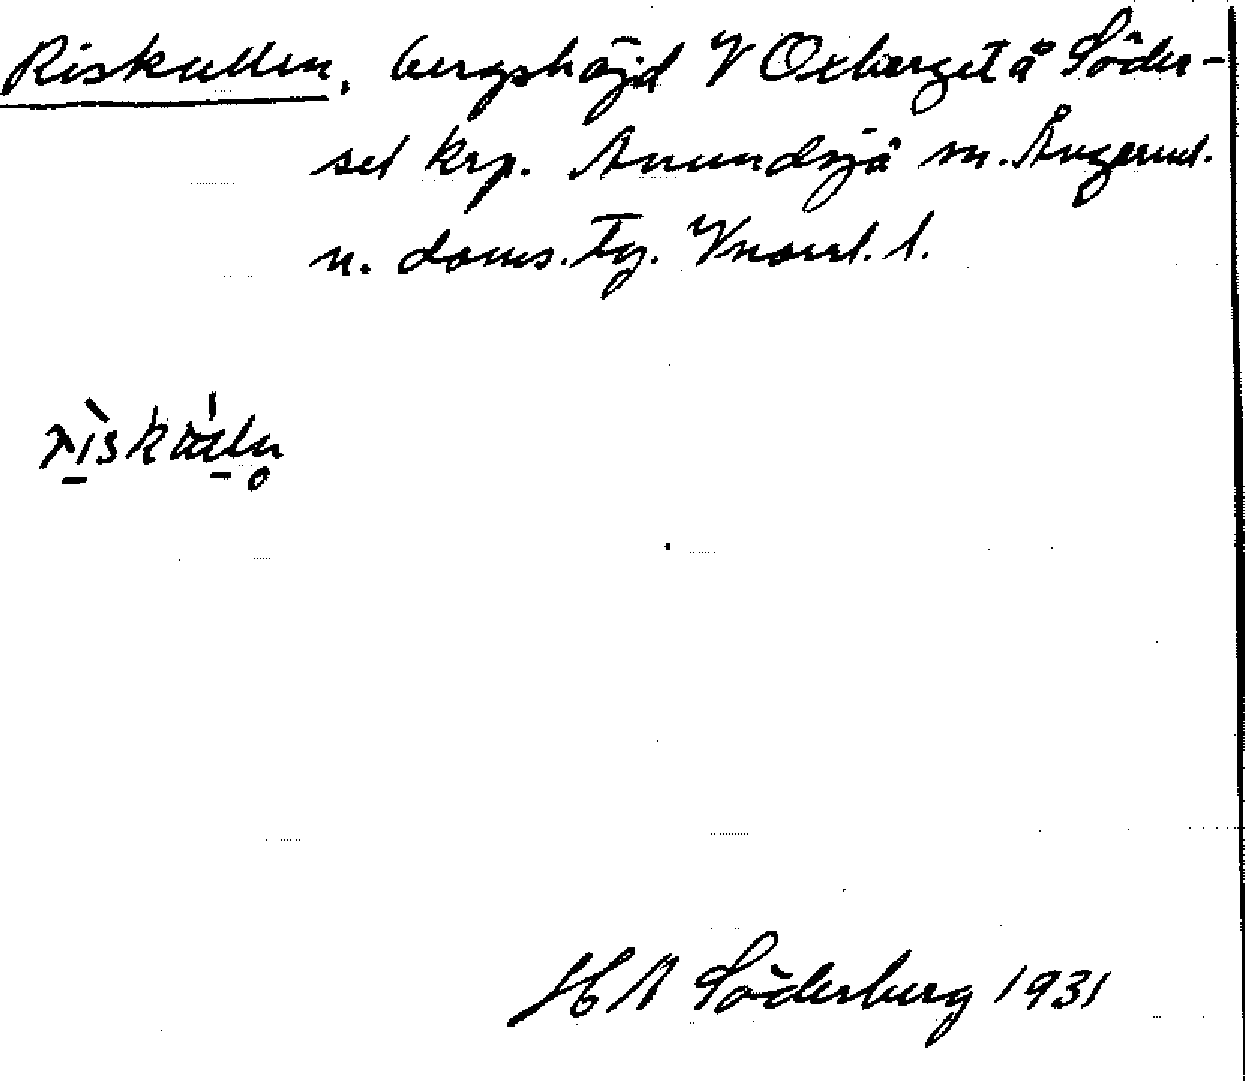 Riskullen, bergshöjd V Oxberget å Söder-
sel krp. Anundsjö sn. Ångerml.
n. doms. tg. Vnorrl. l.
H A Söderberg 1931